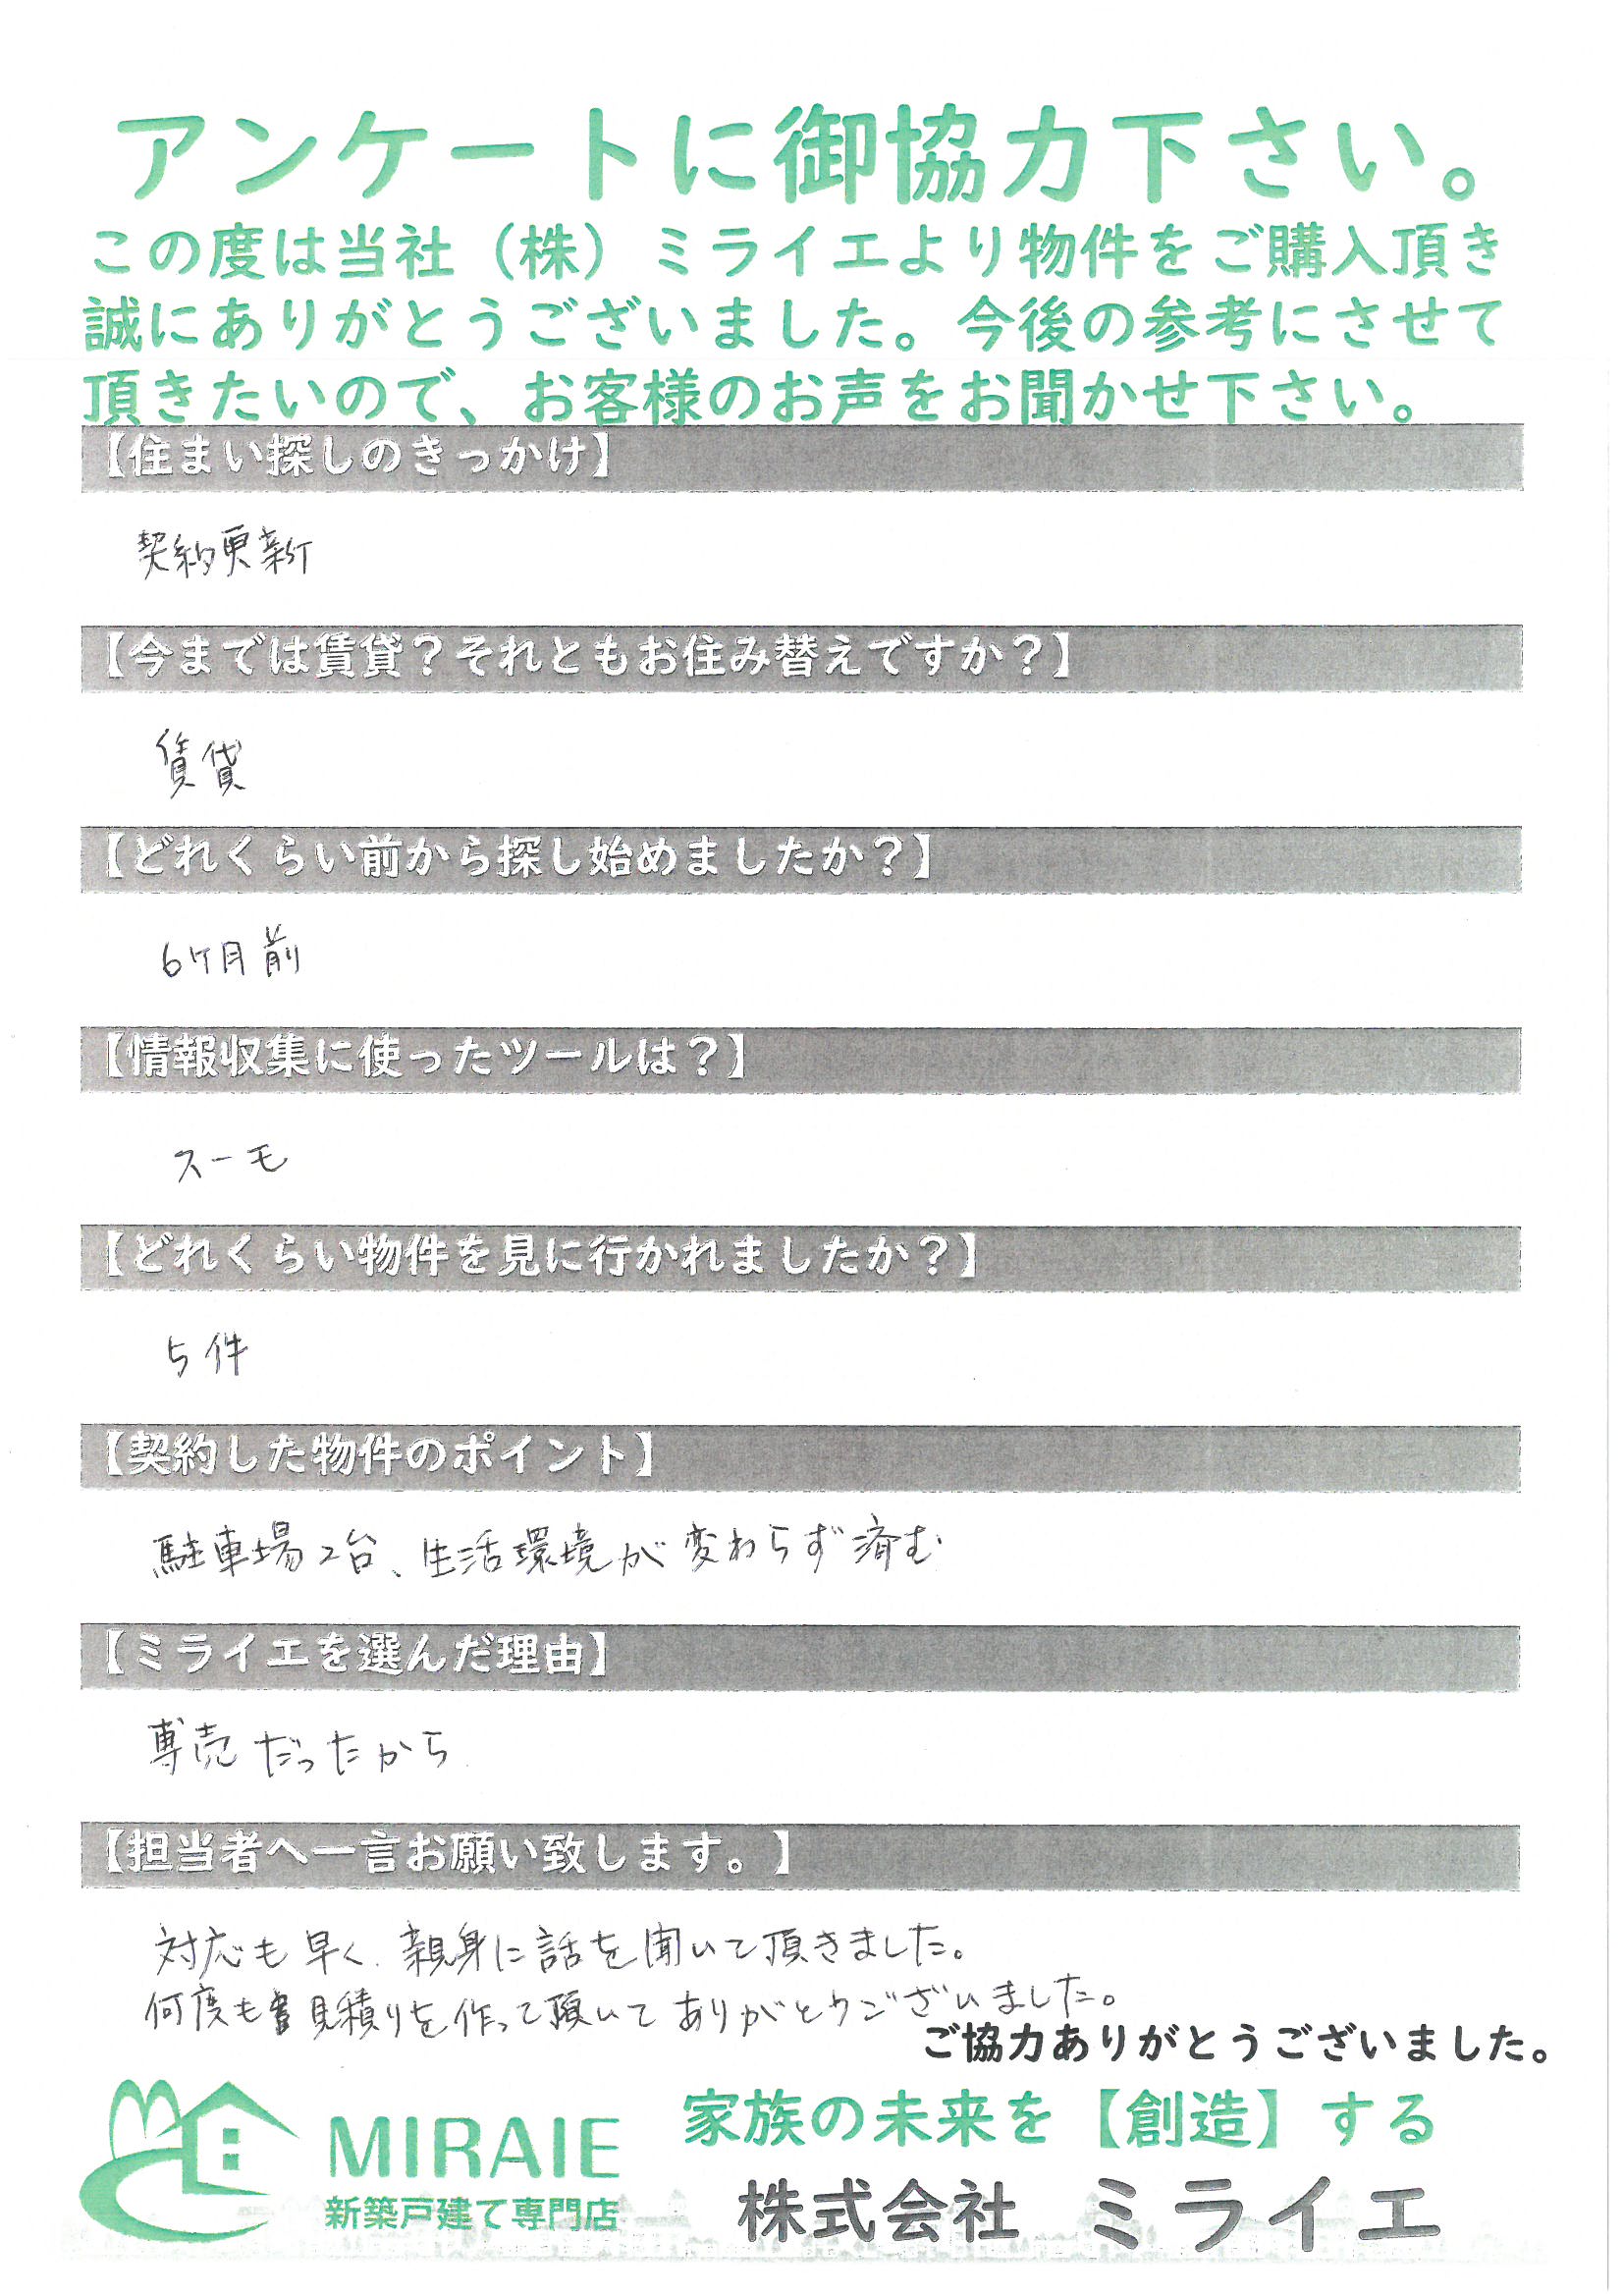 アンケートに御協力下さい。
この度は当社（株）ミライエより物件をご購入頂き
誠にありがとうございました。今後の参考にさせて
頂きたいので、お客様のお声をお聞かせ下さい。
【住まい探しのきっかけ】
契約更新
【今までは賃貸？それともお住み替えですか？】
賃貸
【どれくらい前から探し始めましたか？】
6ヶ月前
【情報収集に使ったツールは？】
スーモ
【どれくらい物件を見に行かれましたか？】
5件
【契約した物件のポイント】
駐車場2台、生活環境が変わらず済む
【ミライエを選んだ理由】
専売だったから
【担当者へ一言お願い致します。】
対応も早く、親身に話を聞いて頂きました。
何度も見積りを作って頂いてありがとうございました。
ご協力ありがとうございました。
MIRAIE
新築戸建て専門店
家族の未来を【創造】する
株式会社 ミライエ